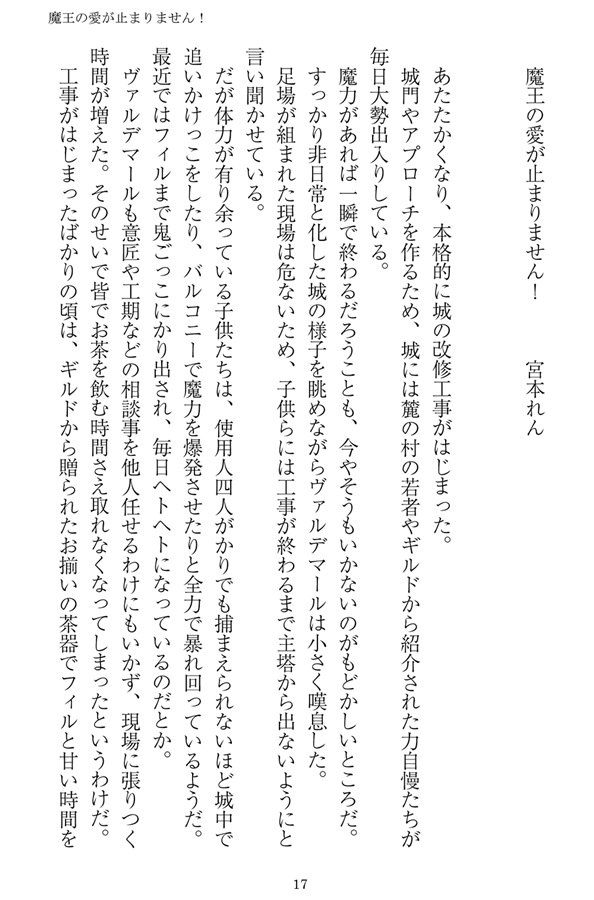 魔王の愛が止まりません！
魔王の愛が止まりません！　　宮本れん
あたたかくなり、本格的に城の改修工事がはじまった。
城門やアプローチを作るため、城には麓の村の若者やギルドから紹介された力自慢たちが
毎日大勢出入りしている。
魔力があれば一瞬で終わるだろうことも、今やそうもいかないのがもどかしいところだ。
すっかり非日常と化した城の様子を眺めながらヴァルデマールは小さく嘆息した。
足場が組まれた現場は危ないため、子供らには工事が終わるまで主塔から出ないようにと
言い聞かせている。
だが体力が有り余っている子供たちは、使用人四人がかりでも捕まえられないほど城中で
追いかけっこをしたり、バルコニーで魔力を爆発させたりと全力で暴れ回っているようだ。
最近ではフィルまで鬼ごっこにかり出され、毎日ヘトヘトになっているのだとか。
ヴァルデマールも意匠や工期などの相談事を他人任せるわけにもいかず、現場に張りつく
時間が増えた。そのせいで皆でお茶を飲む時間さえ取れなくなってしまったというわけだ。
工事がはじまったばかりの頃は、ギルドから贈られたお揃いの茶器でフィルと甘い時間を
17